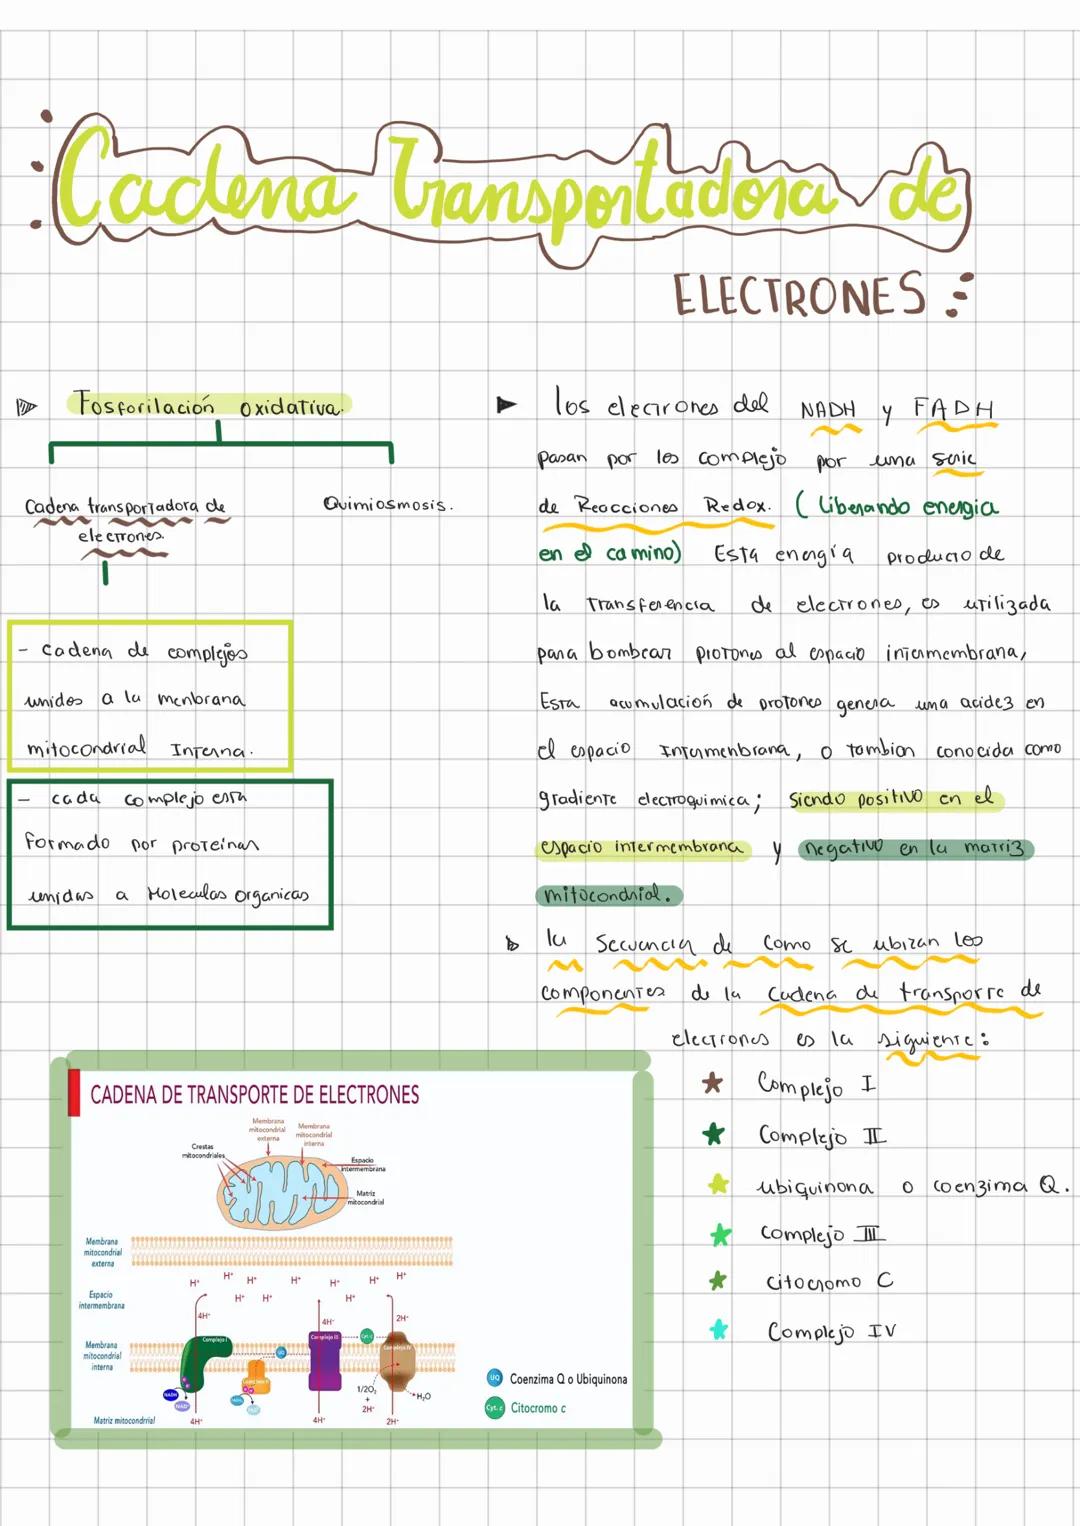 Cadena Transportadora de
ELECTRONES
Fosforilación oxidativa.
Cadena transportadora de
electrones.
Quimiosmosis.
- cadena de complejos
unidos a la menbrana
mitocondrial Interna.
- cada complejo esta
formado por proteinas
unidas a Moleculas organicas
los electrones del NADH y FADH
pasan por los complejo por una serie
de Reacciones Redox. (Liberando energia
en el camino) Esta energía producto de
la transferencia de electrones, es utilizada
para bombear protones al espacio intermembrana,
Esta acumulación de protones genera una acidez en
el espacio Intermenbrana, o tambien conocida como
gradiente electroquimica; siendo positivo en el
espacio intermembrana y negativo en la matriz
mitocondrial.
la secuencia de como se ubizan los
componentes de la cadena de transporte de
electrones es la siguiente:
Complejo I
Complejo II
ubiquinona o coenzima Q.
complejo III
citocromo C
Complejo IV
CADENA DE TRANSPORTE DE ELECTRONES
Membrana
mitocondrial
externa
Membrana
mitocondrial
interna
Crestas
mitocondriales
Espacio
intermembrana
Matriz
mitocondrial
Membrana
mitocondrial
externa
H+ H+ H+ H+ H+ H+ H+
H+ H+ H+
Espacio
intermembrana
4H+ 4H+ 2H+
Membrana
mitocondrial
interna
Complejo I
UQ
Complejo III
Cyt. c
Complejo IV
NADH
NAD+
1/2O₂
+
2H+
H₂O
Matriz mitocondrrial
4H+ 4H+ 2H+
UQ Coenzima Q o Ubiquinona
Cyt. c Citocromo c